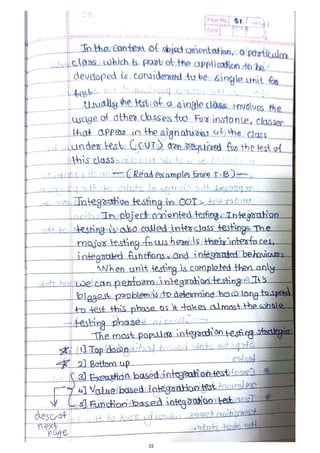 Page No. 51
Date
In the context of object orientation, a particular
class which is part of the application to be
developed is considered to be single unit for
test.
Usually the test of a single class involves the
usage of other classes too. For instance, classes
that appear in the signatures of the class
under test (CUT) are required for the test of
this class
— (Read examples from T.B) —
Integration testing in OOT :-
In object oriented testing, Integration
testing is also called inter class testing. The
major testing focus here is their interfaces,
integrated functions and integrated behaviours
When unit testing is completed then only
we can perform integration testing. It's
biggest problem is to determine how long to spend
to test this phase as it takes almost the whole
testing phase
The most popular integration testing strategies
1] Top down
2] Bottom up
3] Execution based integration test
4] Value based Integration test
5] Function based integration test
desc at
next
page
22